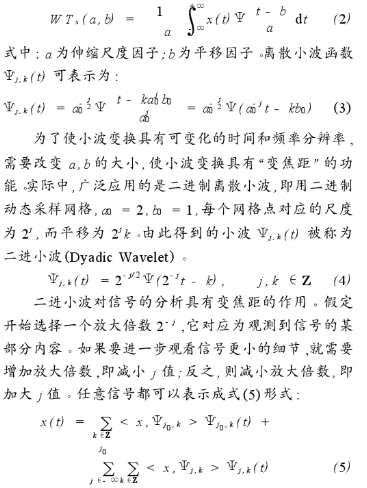 WT_x(a,b) = 1/a ∫_{-∞}^{+∞} x(t) Ψ (t - b)/a dt (2)
式中: a 为伸缩尺度因子; b 为平移因子。离散小波函数
Ψ_{j,k}(t) 可表示为:
Ψ_{j,k}(t) = a_0^{-j/2} Ψ (t - k a_0^j b_0)/a_0^j = a_0^{-j/2} Ψ(a_0^{-j} t - kb_0) (3)
为了使小波变换具有可变化的时间和频率分辨率,
需要改变 a,b 的大小,使小波变换具有“变焦距”的功
能。实际中,广泛应用的是二进制离散小波,即用二进制
动态采样网格, a_0 = 2, b_0 = 1, 每个网格点对应的尺度
为 2^j, 而平移为 2^j k。由此得到的小波 Ψ_{j,k}(t) 被称为
二进小波(Dyadic Wavelet)。
Ψ_{j,k}(t) = 2^{-j/2} Ψ(2^{-j} t - k), j,k ∈ Z (4)
二进小波对信号的分析具有变焦距的作用。假定
开始选择一个放大倍数 2^{-j}, 它对应为观测到信号的某
部分内容。如果要进一步观看信号更小的细节,就需要
增加放大倍数,即减小 j 值;反之,则减小放大倍数,即
加大 j 值。任意信号都可以表示成式(5)形式:
x(t) = ∑_{k∈Z} < x, Ψ_{j_0,k} > Ψ_{j_0,k}(t) +
∑_{j∈-∞}^{j_0} ∑_{k∈Z} < x, Ψ_{j,k} > Ψ_{j,k}(t) (5)